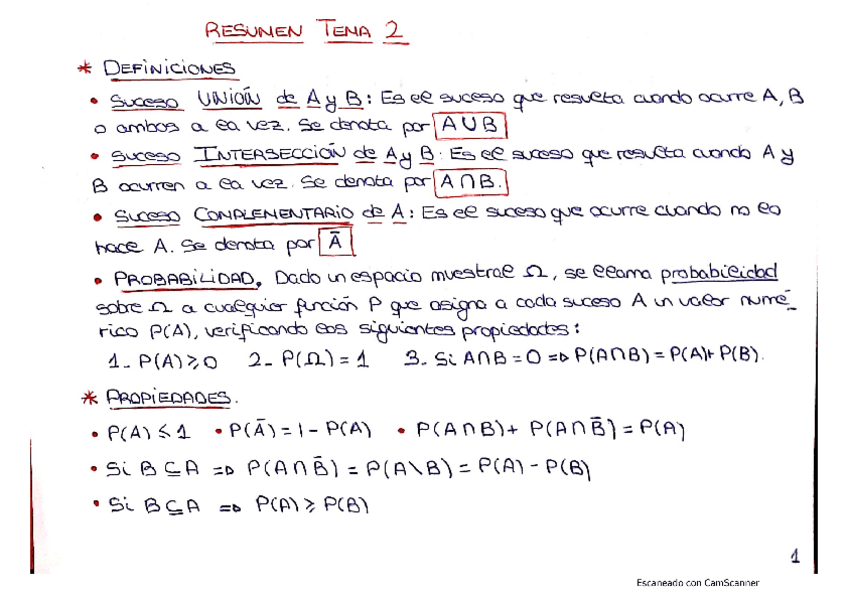 RESUMEN TEMA 2
* DEFINICIONES
• SUCESO UNIÓN de A y B: Es el suceso que resulta cuando ocurre A, B
o ambos a la vez. Se denota por A∪B
• SUCESO INTERSECCIÓN de A y B: Es el suceso que resulta cuando A y
B ocurren a la vez. Se denota por A∩B.
• SUCESO COMPLEMENTARIO de A: Es el suceso que ocurre cuando no lo
hace A. Se denota por Ā
• PROBABILIDAD. Dado un espacio muestral Ω, se llama probabilidad
sobre Ω a cualquier función P que asigna a cada suceso A un valor numé-
rico P(A), verificando los siguientes propiedades:
1_ P(A)≥0 2_ P(Ω)=1 3_ Si A∩B=0 => P(A∩B)=P(A)+P(B).
* PROPIEDADES.
• P(A)≤1 • P(Ā)=1-P(A) • P(A∩B)+P(A∩B̄)=P(A)
• Si B⊆A => P(A∩B̄)=P(A\B)=P(A)-P(B)
• Si B⊆A => P(A)≥P(B)
1
Escaneado con CamScanner